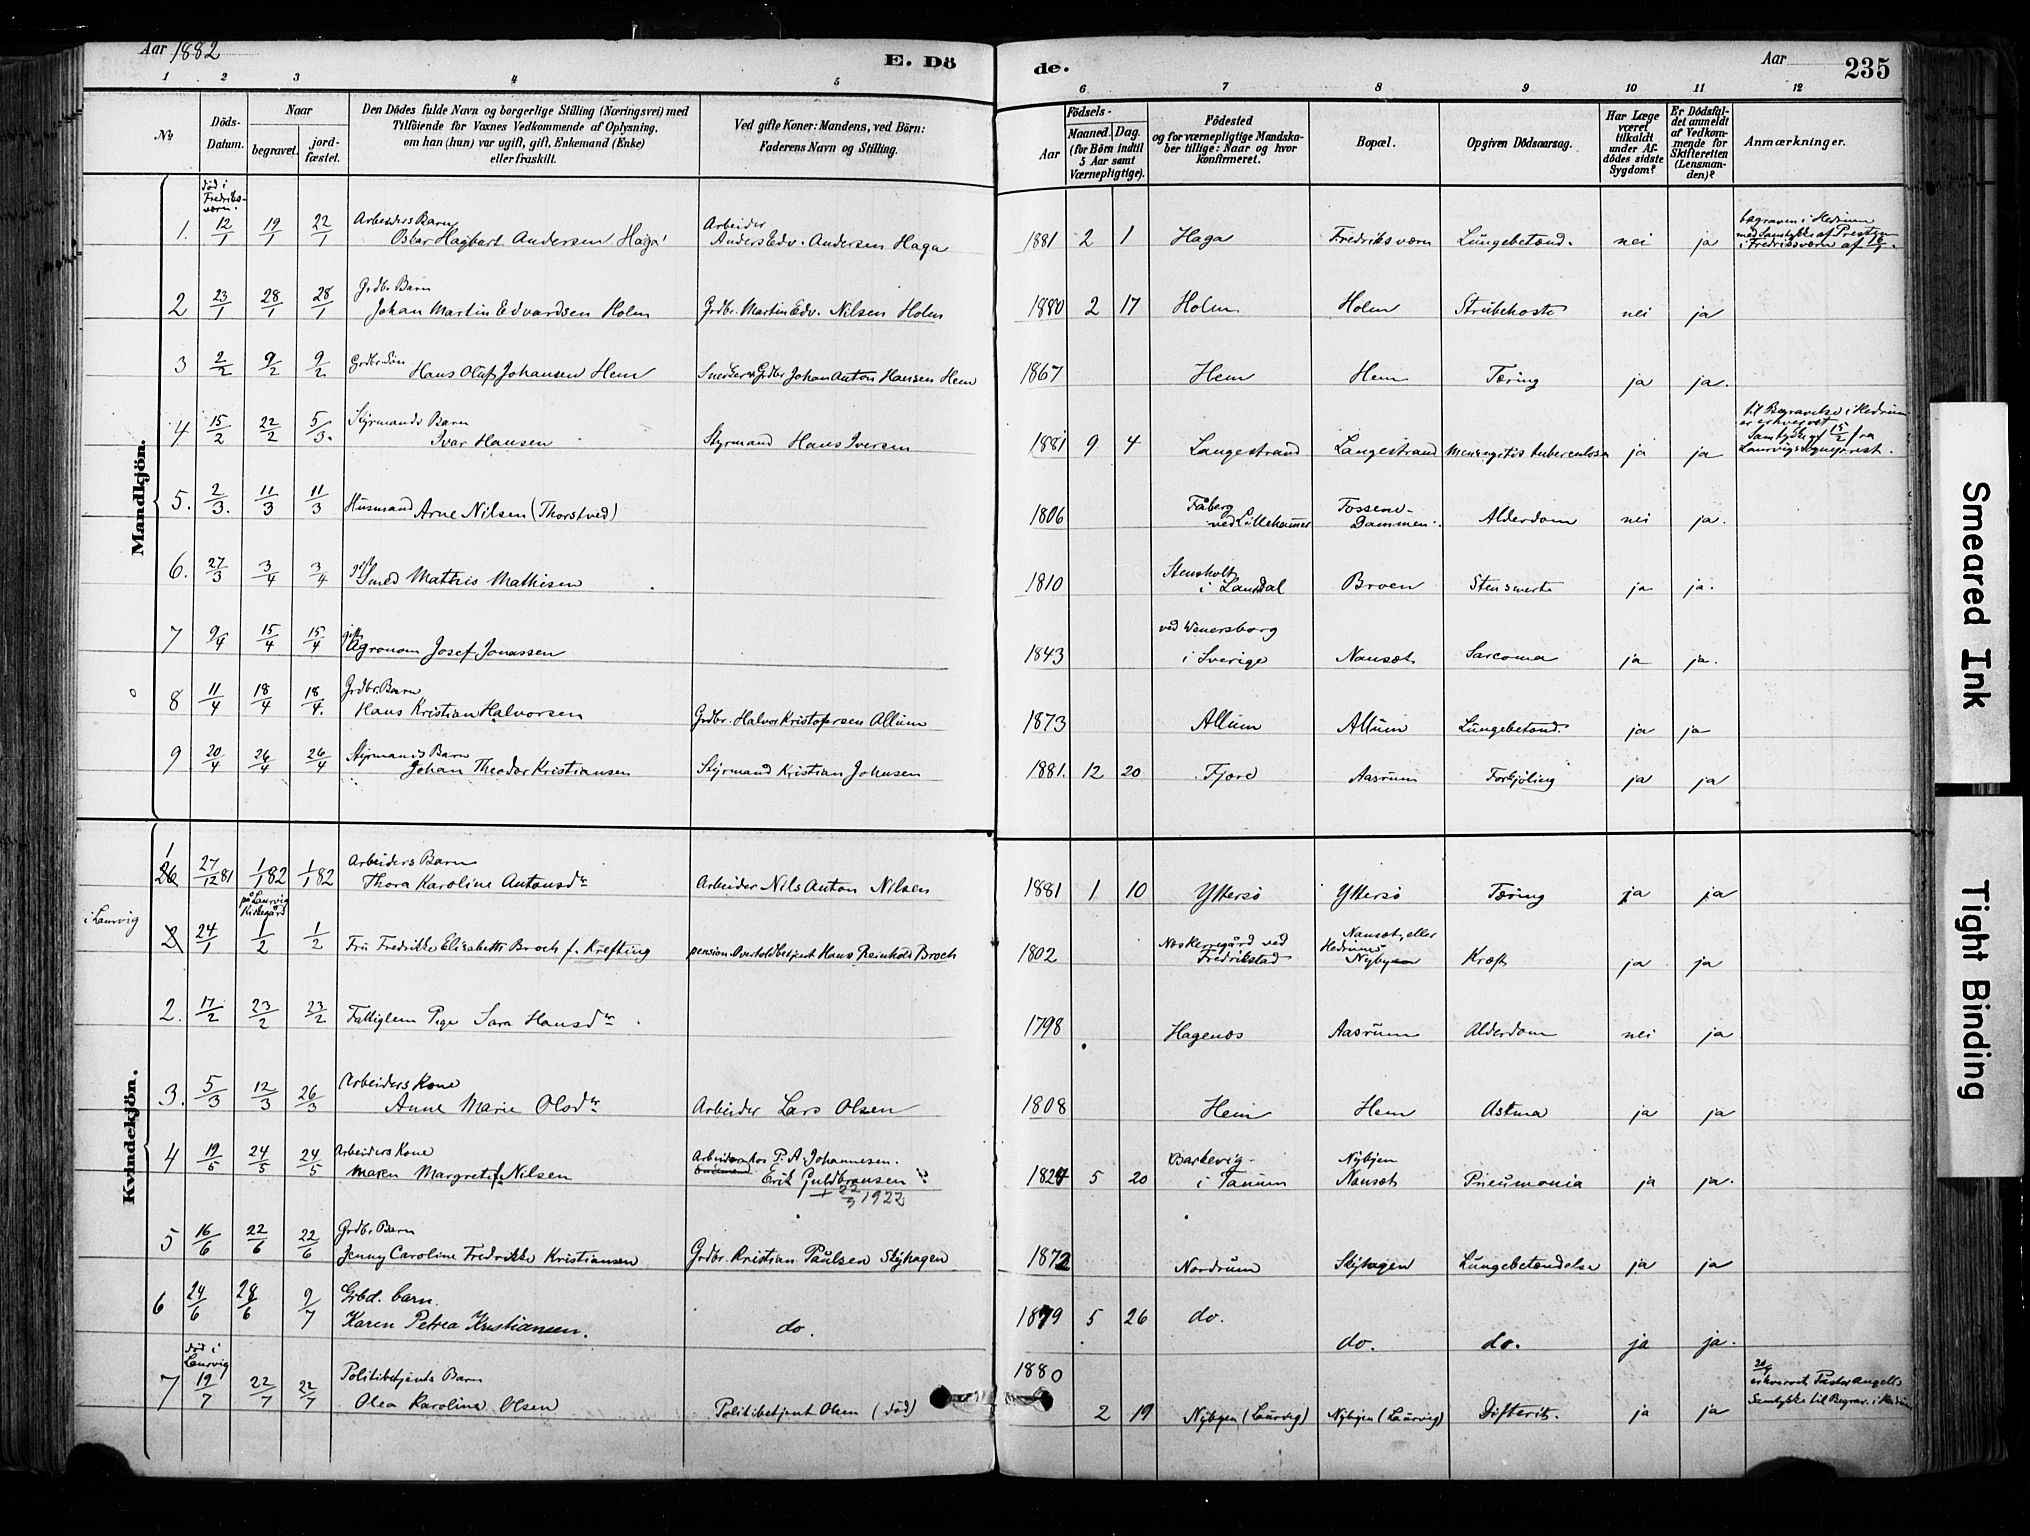 Aar 1882
E. Dö
de.
Aar
235
1 2 3 4 5 6 7 8 9 10 11 12
No
Döds-
Datum.
Naar
begravet.
jord-
fæstet.
Den Dödes fulde Navn og borgerlige Stilling (Næringsvei) med
Tilföiende for Voxnes Vedkommende af Oplysning,
om han (hun) var ugift, gift, Enkemand (Enke)
eller fraskilt.
Ved gifte Koner: Mandens, ved Börn:
Faderens Navn og Stilling.
Födsels-
Aar
Maaned. Dag.
(for Börn indtil
5 Aar samt
Værnepligtige).
Födested
og for værnepligtige Mandska-
ber tillige: Naar og hvor
Konfirmeret.
Bopæl.
Opgiven Dödsaarsag.
Har Læge
været
tilkaldt
under Af-
dödes sidste
Sygdom?
Er Dödsfal-
det anmeldt
af Vedkom-
mende for
Skifteretten
(Lensman-
den)?
Anmærkninger.
Mandkjön.
død i
Fredriks-
værn.
1. 12/1 19/1 22/1 Arbeiders Barn
Oskar Hagbart Andersen Haga
Arbeider
Anders Edv. Andersen Haga 1881 2 1 Haga Fredriksværn Lungebetænd. nei ja
begraven i Hedrum
med Samtykke af Presten
i Fredriksværn af
2 23/1 28/1 28/1 Grdbr. Barn
Johan Martin Edvardsen Holm Grdbr. Martin Edv. Nilsen Holm 1880 2 17 Holm Holm Strubehoste nei ja
3 2/2 9/2 9/2 Grdbr. Søn
Hans Oluf Johansen Hem Grdbr Johan Anton Hansen Hem 1867 Hem Hem Tæring ja ja.
4 15/2 22/2 5/3. Styrmands Barn
Ivar Hansen Styrmand Hans Iversen 1881 9 4 Langestrand Langestrand Meningitis tuberculosa ja ja
til Begravelse i Hedrum
er erhvervet
Samtykke 15/2 fra
Laurvigs Sogneprest.
5. 2/3. 11/3 11/3 Husmand Arne Nilsen (Thorstved) 1806 Fåberg
ved Lillehamer Fossene-
Dammen. Alderdom nei ja.
6. 27/3 3/4 3/4 gift
Smed Mathis Mathisen 1810 Stensholt
i Laurdal Broen Stensmerte ja ja.
7 9/4 15/4 15/4 gift
Agronom Josef Jonassen 1843 ved Wenersborg
i Sverige Nanset Sarcoma ja ja.
8 11/4 18/4 18/4. Grdbr. Barn
Hans Kristian Halvorsen Grdbr. Halvor Kristofersen Allum 1873 Allum Allum Lungebetænd. ja ja
9 20/4 26/4 26/4 Styrmands Barn
Johan Theodor Kristiansen Styrmand Kristian Johnsen 1881. 12 20 Fjære Aasrum Forkjøling ja ja
Kvindekjön.
1 26 27/12 81 1/1 82 1/1 82 Arbeiders Barn
Thora Karoline Antonsdtr Arbeider Nils Anton Nilsen 1881 1 10 Yttersø Yttersø Tæring ja ja
i Laurvig
på Laurvig
Kirkegård
2 24/1 1/2 1/2 Fru Fredrikke Elisabeth Broch f. Krefting pension. Overtoldbetjent Hans Reinhold Broch 1802 Neskerregård ved
Fredrikstad Nanset, eller
Hedrums
Nybyen Kræft ja ja
2. 17/2 23/2 23/2 Fattiglem Pige Sara Hansdtr. 1798 Hagenes Aasrum Alderdom nei ja
3. 5/3 12/3 26/3 Arbeiders Kone
Anne Marie Olsdtr Arbeider Lars Olsen 1808 Hem Hem Astma ja ja
4 19/5 24/5 24/5 Arbeiders Kone
Maren Margrete f. Nilsen Arbeider hos P. A. Johannesen.
Erik Guldbransen
+ 22/3 1922 1824 5 20 Barkevig
i Tanum Nybyen
Nanset Pneumonia ja ja.
5 16/6 22/6 22/6 Grdbr. Barn
Jenny Caroline Fredrikke Kristiansen Grdbr. Kristian Paulsen Skyhagen 1872 Nordrum Skyhagen Lungebetændelse ja ja
6 24/6 28/6 9/7 Grbd. barn.
Karen Petrea Kristiansen. do. 1879 5 26 do. do. do. ja ja.
død i
Laurvig
7 19/7 22/7 22/7 Politibetjents Barn
Olea Karoline Olsen Politibetjent Olsen (død) 1880 2 19 Nybyen (Laurvig) Nybyen (Laurvig) Difterit. ja ja
erhvervet Pastor Angells
Samtykke til Begrav. i Hedrum
Smeared Ink
Tight Binding